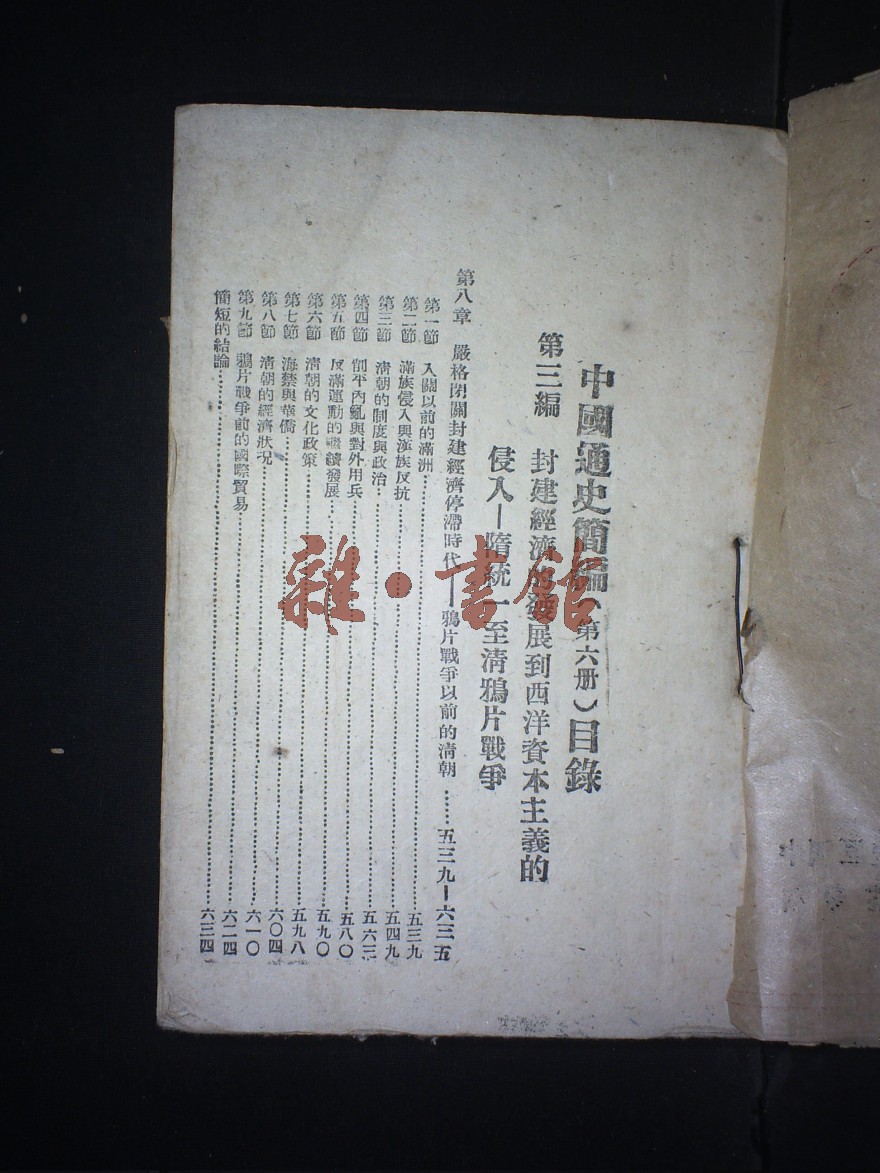 中國通史簡編（第六册）目錄
第三編 封建經濟的發展到西洋資本主義的
侵入—隋統一至清鴉片戰爭
第八章 嚴格閉關封建經濟停滯時代——鴉片戰爭以前的清朝……五三九—六三五
第一節 入關以前的滿洲……五三九
第二節 滿族侵入與漢族反抗……五四九
第三節 清朝的制度與政治……五六三
第四節 削平內亂與對外用兵……五八〇
第五節 反滿運動的繼續發展……五九〇
第六節 清朝的文化政策……五九八
第七節 海禁與華僑……六〇四
第八節 清朝的經濟狀况……六一〇
第九節 鴉片戰爭前的國際貿易……六二四
簡短的結論……六三四
雜·書館